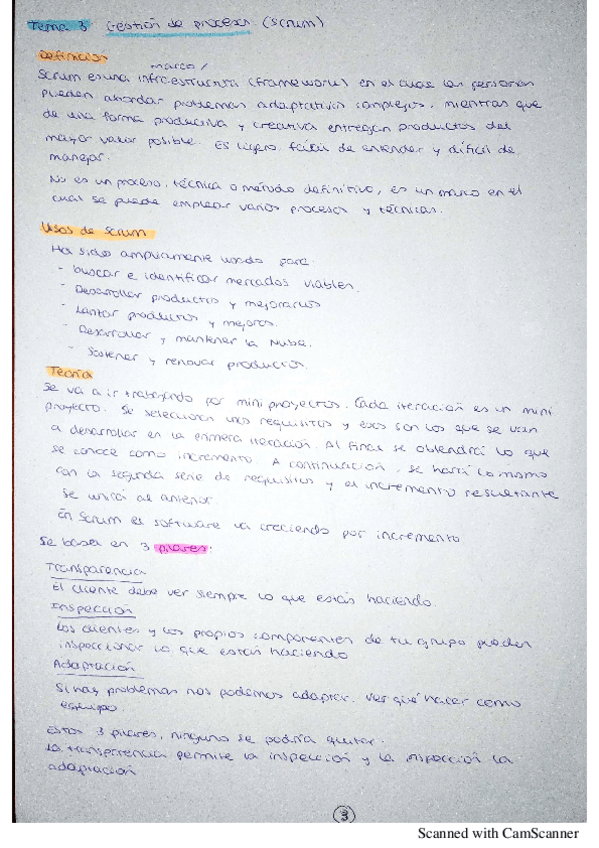 Tema 3 Gestión de procesos (scrum)
Definición
marco /
Scrum es una infraestructura (framework) en el cual las personas
pueden abordar problemas adaptativos complejos, mientras que
de una forma productiva y creativa entregan productos del
mayor valor posible. Es ligero, fácil de entender y difícil de
manejar.
No es un proceso, técnica o método definitivo, es un marco en el
cual se puede emplear varios procesos y técnicas.
Usos de Scrum
Ha sido ampliamente usado para:
- buscar e identificar mercados viables.
- Desarrollar productos y mejorarlos
- Lanzar productos y mejoras.
- Desarrollar y mantener la Nube.
- Sostener y renovar productos.
Teoría
Se va a ir trabajando por mini proyectos. Cada iteración es un mini
proyecto. Se selecciona unos requisitos y esos son los que se van
a desarrollar en la primera iteración. Al final se obtendrá lo que
se conoce como incremento. A continuación, se hará lo mismo
con la segunda serie de requisitos y el incremento resultante
se unirá al anterior
En Scrum el software va creciendo por incremento
Se basa en 3 pilares:
Transparencia
El cliente debe ver siempre lo que estás haciendo.
Inspección
Los clientes y los propios componentes de tu grupo pueden
inspeccionar lo que estás haciendo
Adaptación
Si hay problemas nos podemos adaptar. Ver qué hacer como
equipo.
Estos 3 pilares, ninguno se podría quitar.
La transparencia permite la inspección y la inspección la
adaptación
3
Scanned with CamScanner